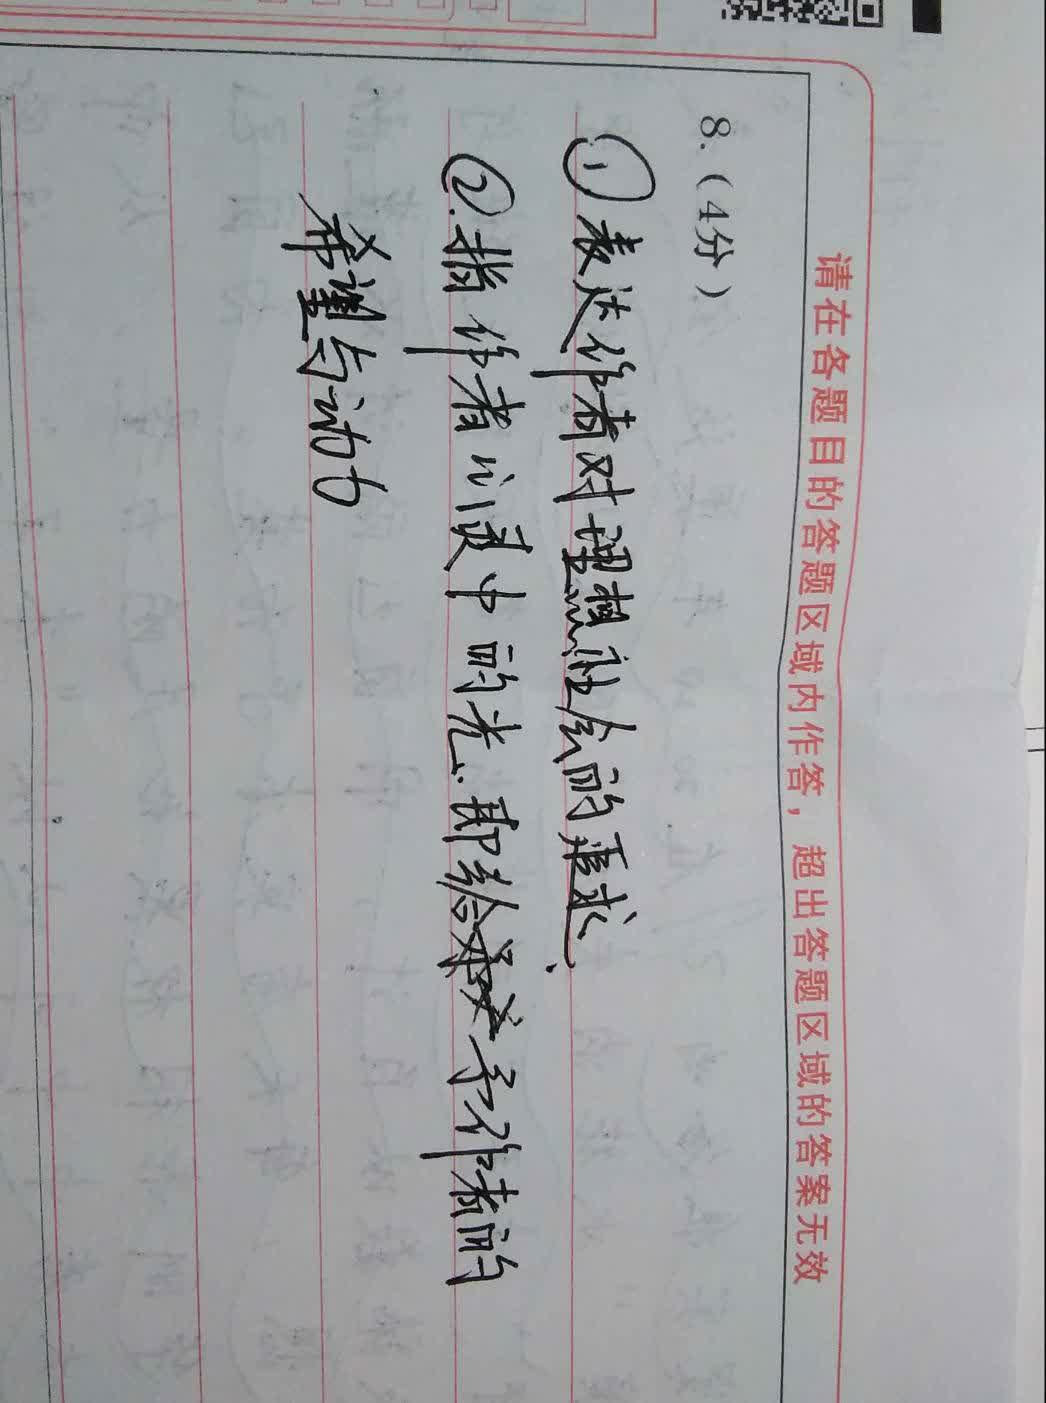 请在各题目的答题区域内作答，超出答题区域的答案无效
8.（4分）
①表达作者对理想社会的追求.
②.指作者心灵中的光.即给予作者的
希望与动力